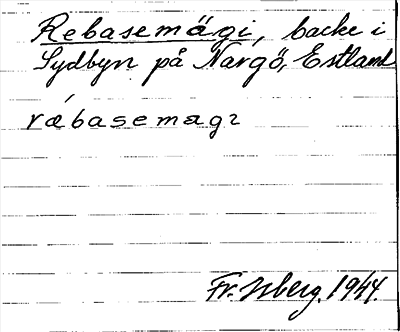 Rebasemägi, backe i
Sydbyn på Nargö, Estland
rǽbasemagı
Fr. Isberg. 1944.